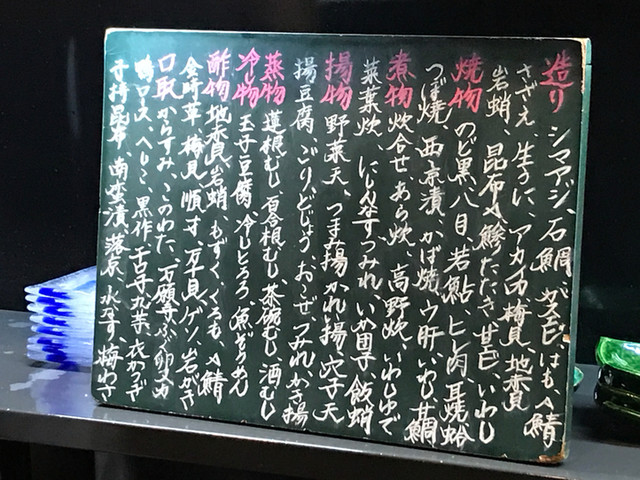 造り シマアジ、石鯛、ガスエビ、はも、〆鯖
さざえ、生うに、アカイカ、梅貝、地赤貝
岩蛸、昆布〆鯵たたき、甘エビ、いわし
焼物 のど黒、八目、若鮎、ヒレ肉、耳焼蛤
つぼ焼、西京漬、かば焼、ウ肝、いわし、甘鯛
煮物 炊合せ、あら炊、高野炊、いわしゆで
菜葉炊、にしんなす、つみれ、いか団子、飯蛸
揚物 野菜天、つまみ揚、かれい揚、穴子天
揚豆腐、ごり、どじょう、おこぜ、つみれ、かき揚
蒸物 蓮根むし、百合根むし、茶碗むし、酒むし
冷し物 玉子豆腐、冷しとろろ、魚ぞうめん
酢物 地赤貝、岩蛸、もずく、くろも、〆鯖
金時草、梅貝、順才、万十貝、ゲソ、岩がき
口取 からすみ、このわた、石願寺、ふぐ卵巣
鴨ロース、へしこ、黒作、丸葉、衣かつぎ
子持昆布、南蛮漬、落泉、水なす、梅わさ